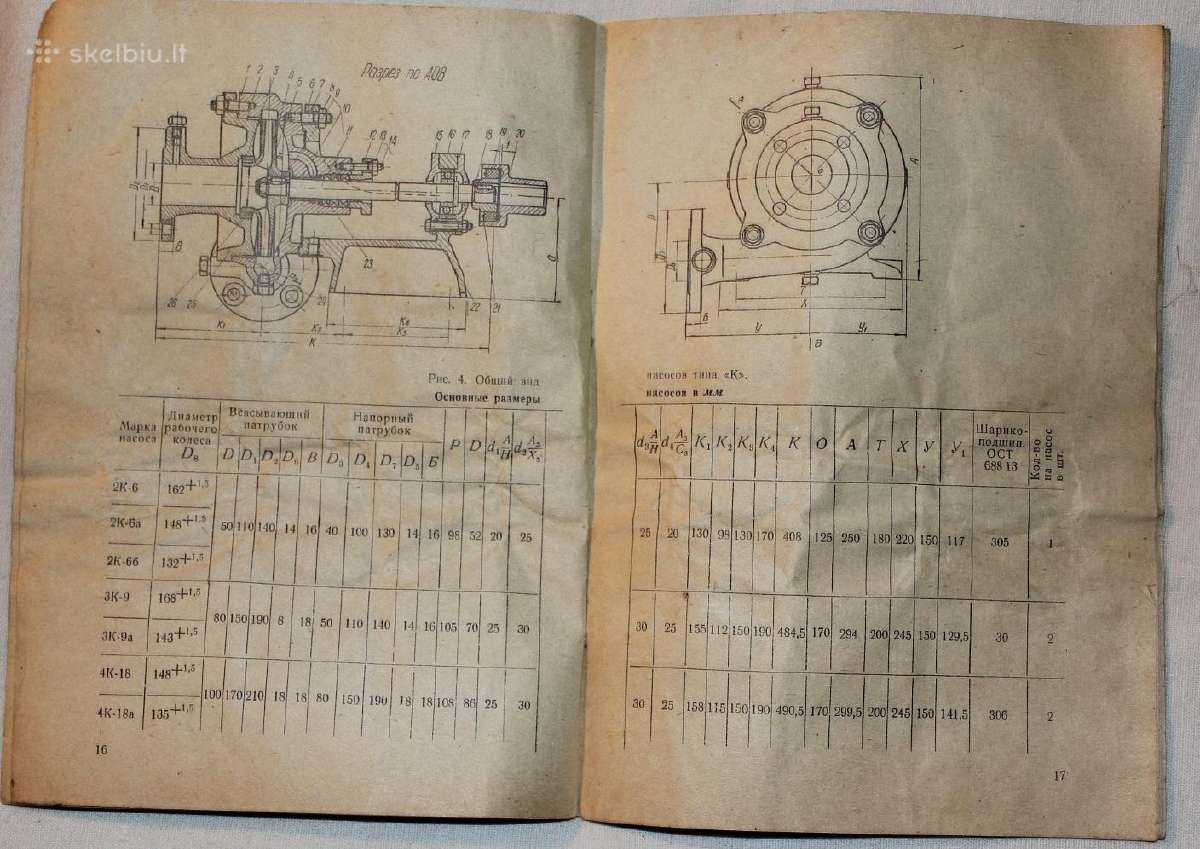 skelbiu.lt
Разрез по АОВ
1 2 3 4 5 6 7 8 9
10
11 12 13 14 15 16 17 18 19 20
26 25 24 23 22 21
K₁ K₂ K₄
K₃
K
Рис. 4. Общий вид
Основные размеры
Марка насоса | Диаметр рабочего колеса D₈ | Всасывающий патрубок | Напорный патрубок
D D₁ D₂ B D₃ D₄ D₇ D₅ Б P D
2К-6 162+1,5
2К-6а 148+1,5 50 110 140 14 16 40 100 130 14 16 98 52 20 25
2К-6б 132+1,5
3К-9 168+1,5
80 150 190 8 18 50 110 140 14 16 105 70 25 30
3К-9а 143+1,5
4К-18 148+1,5
100 170 210 18 18 80 150 190 18 18 108 86 25 30
4К-18а 135+1,5
16
A
T
X
Б У У₁
В
насосов типа «К».
насосов в мм
K₁ K₂ K₃ K₄ K O A T X У У₁ Шарико-подшип. ОСТ 688 13 Кол-во на насос в шт.
25 20 130 99 130 170 408 125 250 180 220 150 117 305 1
30 25 155 112 150 190 484,5 170 294 200 245 150 129,5 30 2
30 25 158 115 150 190 490,5 170 299,5 200 245 150 141,5 306 2
17